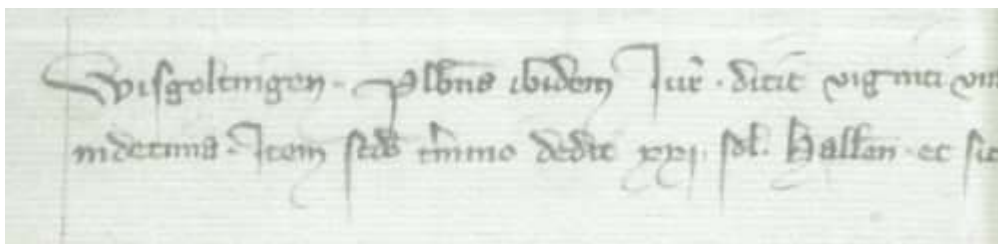 Wisgoltingen. Plbns ibidem Jur̄. dicit viginti
in decima. Item scdo t̄mino dedit xxj. sol. Hallen. et sic